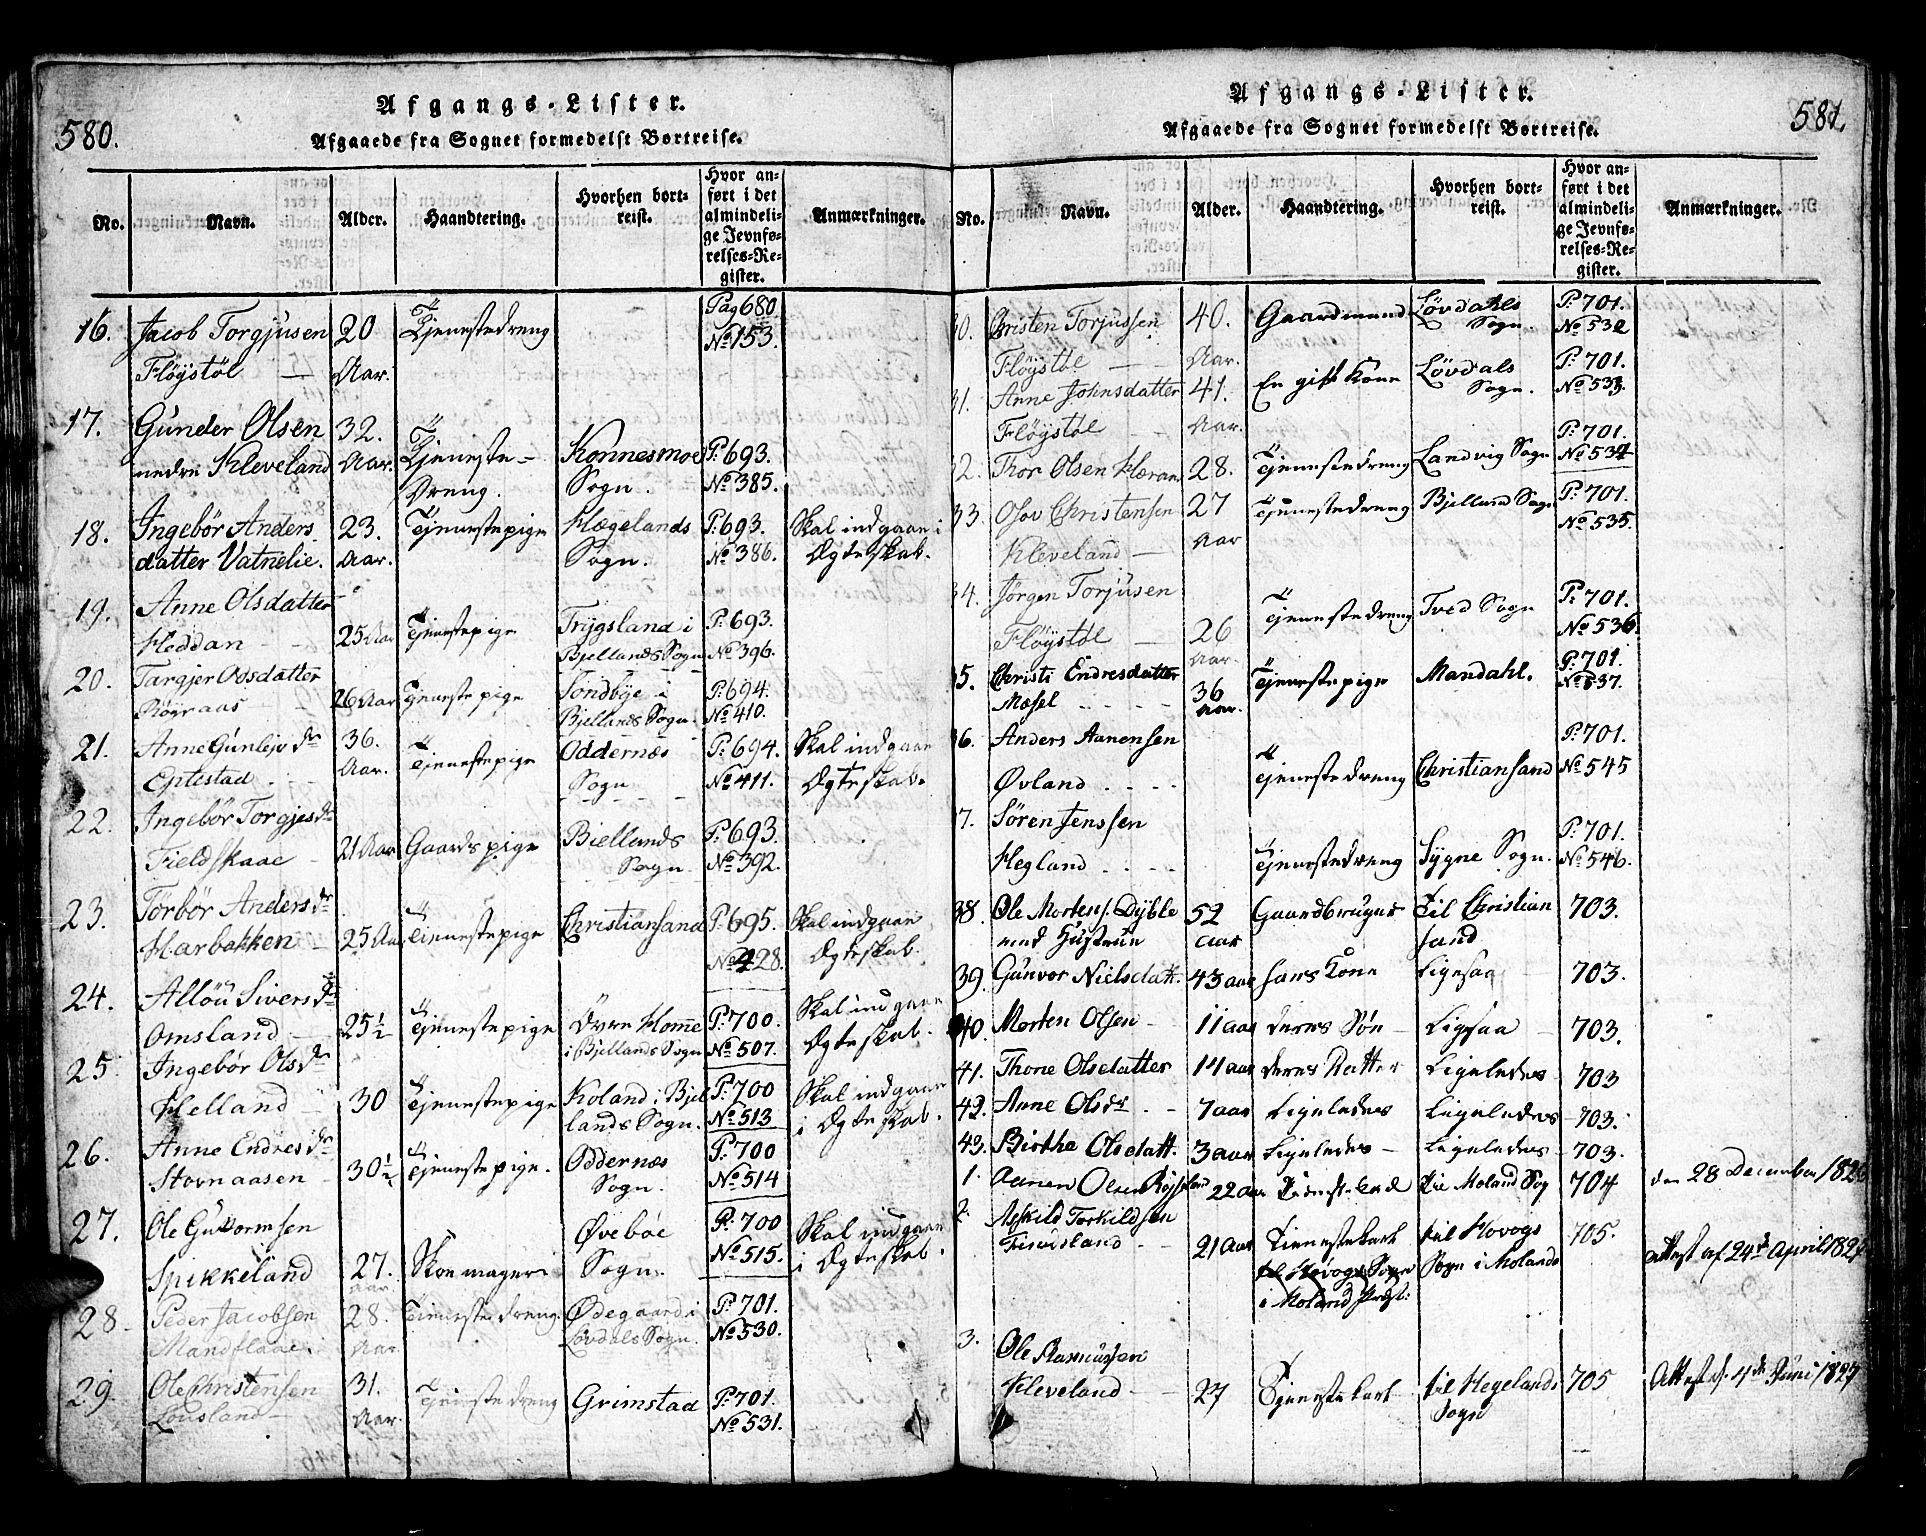 580.
Afgangs-Lister.
Afgaaede fra Sognet formedelst Bortreise.
No. Navn. Alder. Haandtering. Hvorhen bort-reist. Hvor an-ført i det almindeli-ge Jevnfø-relses-Re-gister. Anmærkninger.
16. Jacob Torgjusen 20 Tjenestedreng Pag 680
Fløystøl Aar. No 153.
17. Gunder Olsen 32. Tjeneste- Konnesmoe P. 693.
nedre Kleveland Aar. Dreng. Sogn. No 385.
18. Ingebør Anders 23. Tjenestepige Hægelands P. 693. Skal indgaae i
datter Vatnelie. Aar. Sogn. No 386. Ægteskab.
19. Anne Olsdatter
Heddan 25 Aar Tjenestepige Trygsland i P. 693.
Bjellands Sogn No 396.
20. Targjer Olsdatter 26 Aar Tjenestepige Sondbye i P. 694.
Røgraas Bjellands Sogn. No 410.
21. Anne Gunlejvdr 36. Tjenestepige Oddernæs P. 694. Skal indgaae
Eptestad Aar. Sogn No 411. Ægteskab.
22. Ingebør Torgjesdr
Fieldskaae 21 Aar Gaardspige Biellands P. 693
Sogn No 392.
23. Torbør Andersdr
Harbakken 25 Aar Tienestepige Christiansand P. 695. Skal indgaae
No 428. Ægteskab.
24. Alløu Siversdr
Omsland 25½ Tjenestepige Øvre Home P. 700. Skal indgaae
i Bjellands Sogn No 507. Ægteskab.
25. Ingebør Olsdr
Helland 30 Tjenestepige Koland i Bjel P. 700 Skal indgaae
lands Sogn. No 513 i Ægteskab.
26. Anne Endresdr
Stovnaasen 30½ Tjenestepige. Oddernæs P. 700
Sogn. No 514
27. Ole Guttormsen Øvebøe P. 700 Skal indgaae
Spikkeland 27. Skomager Sogn. No 515. i Ægteskab.
Aar.
28. Peder Jacobsen 28. Tienestedreng. Ødegaard i P. 701.
Mandflaae. Aar Løvdals Sogn. No 530.
29. Ole Christensen 31. Tjenestedreng Grimstad P. 701.
Lousland Aar. No 531.
581.
Afgangs-Lister.
Afgaaede fra Sognet formedelst Bortreise.
No. Navn. Alder. Haandtering. Hvorhen bort-reist. Hvor an-ført i det almindeli-ge Jevnfø-relses-Re-gister. Anmærkninger.
30. Christen Torjussen 40. Gaardmand Løvdahls P. 701.
Fløystøl Aar. Sogn. No 532
31. Anne Johnsdatter 41. En gift Kone Løvdals P. 701.
Fløystøl Aar. Sogn. No 533.
32. Thor Olsen Kleran 28. Tjenestedreng Landvig Sogn P. 701.
No 534
33. Osov Christensen 27 Tjenestedreng Bjelland Sogn P. 701.
Kleveland Aar No 535.
34. Jørgen Torjusen Tjenestedreng Tved Sogn P. 701.
Fløystøl 26 No 536.
Aar.
35. Christi Endresdatter 36 Tjenestepige Mandahl. P. 701.
Mæsel Aar. No 537.
36. Anders Aanensen P. 701.
Øvland Tjenestedreng Christiansand No 545
37. Søren Jenssen P. 701.
Hegland Tjenestedreng Sygne Sogn. No 546.
38. Ole Mortens. Dyble 52 Gaardbruger Til Christian 703.
med Hustrue aar sand
39. Gunvor Nielsdatt. 43 aar hans Kone Ligesaa 703.
40. Morten Olsen 11 aar deres Søn Ligesaa 703.
41. Thone Olsdatter 14 aar deres Datter Ligeledes 703
42. Anne Olsdr 7 aar Ligeledes Ligeledes 703.
43. Birthe Olsdatt. 3 aar Ligeledes Ligeledes 703.
1. Aanen Olsen 22 aar til Moland Sog 704 den 28 December 182
2. Askild Terkildsen
21 Aar Tienestekarl til Hovogs 705. Attest af 24de April 182
til Hovogs Sogn Sogn i Molands
i Moland Præst:
3. Ole Rasmussen
Kleveland 27 Tjenestekarl til Hegelands 705 Attest d. 4de Juni 1827
Sogn